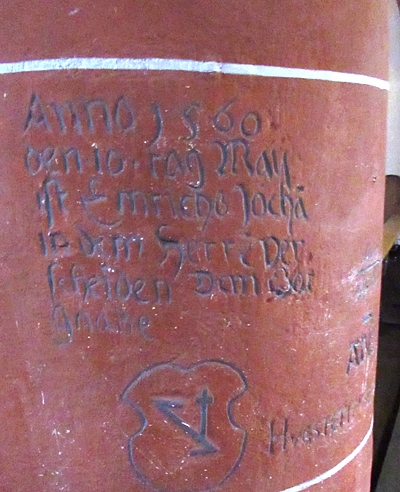 Anno 1560
den 10. tag May
ist Emricho Jochā
in dem Herrē ver
scheiden Dem Got
gnade
AN